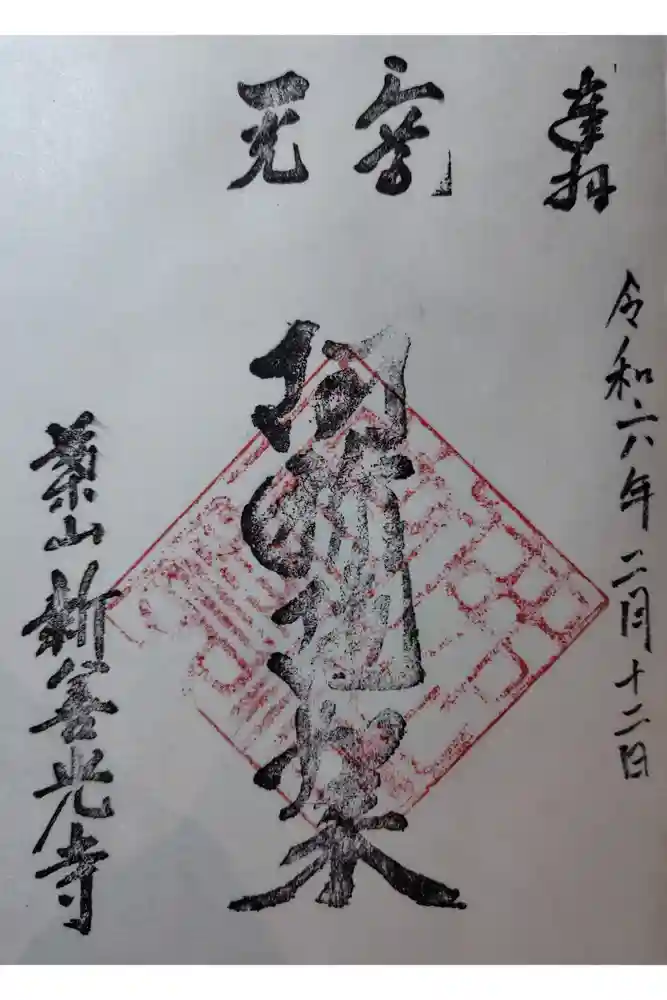 奉拝
令和六年二月十二日
一光
三尊
阿弥陀如来
葉山新善光寺